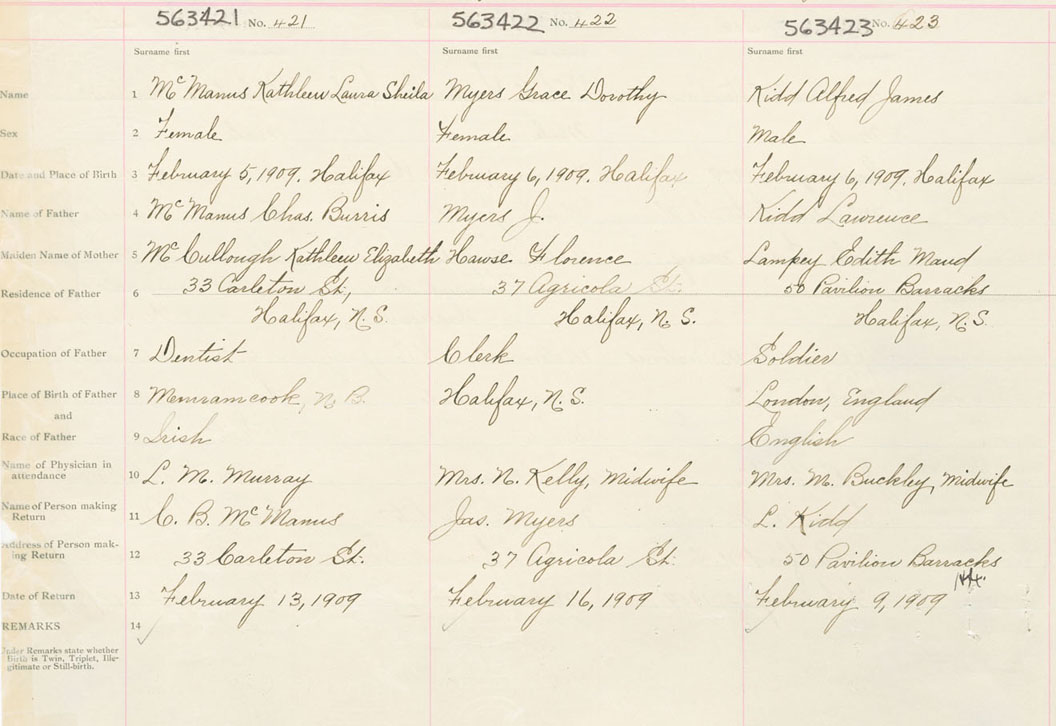 563421 No. 421 563422 No. 422 563423 No. 423
Surname first Surname first Surname first
Name 1 McManus Kathleen Laura Sheila Myers Grace Dorothy Kidd Alfred James
Sex 2 Female Female Male
Date and Place of Birth 3 February 5, 1909. Halifax February 6, 1909. Halifax February 6, 1909. Halifax
Name of Father 4 McManus Chas. Burris Myers J. Kidd Lawrence
Maiden Name of Mother 5 McCullough Kathleen Elizabeth Hawse Florence Lampey Edith Maud
Residence of Father 6 33 Carleton St., 37 Agricola St. 50 Pavilion Barracks
Halifax, N.S. Halifax, N.S. Halifax, N.S.
Occupation of Father 7 Dentist Clerk Soldier
Place of Birth of Father 8 Memramcook, N.B. Halifax, N.S. London, England
and
Race of Father 9 Irish English
Name of Physician in
attendance 10 L. M. Murray Mrs. N. Kelly, Midwife Mrs. M. Buckley, Midwife
Name of Person making
Return 11 C. B. McManus Jas. Myers L. Kidd
Address of Person mak-
ing Return 12 33 Carleton St. 37 Agricola St. 50 Pavilion Barracks
Date of Return 13 February 13, 1909 February 16, 1909 February 9, 1909
REMARKS 14
Under Remarks state whether
Birth is Twin, Triplet, Ille-
gitimate or Still-birth.